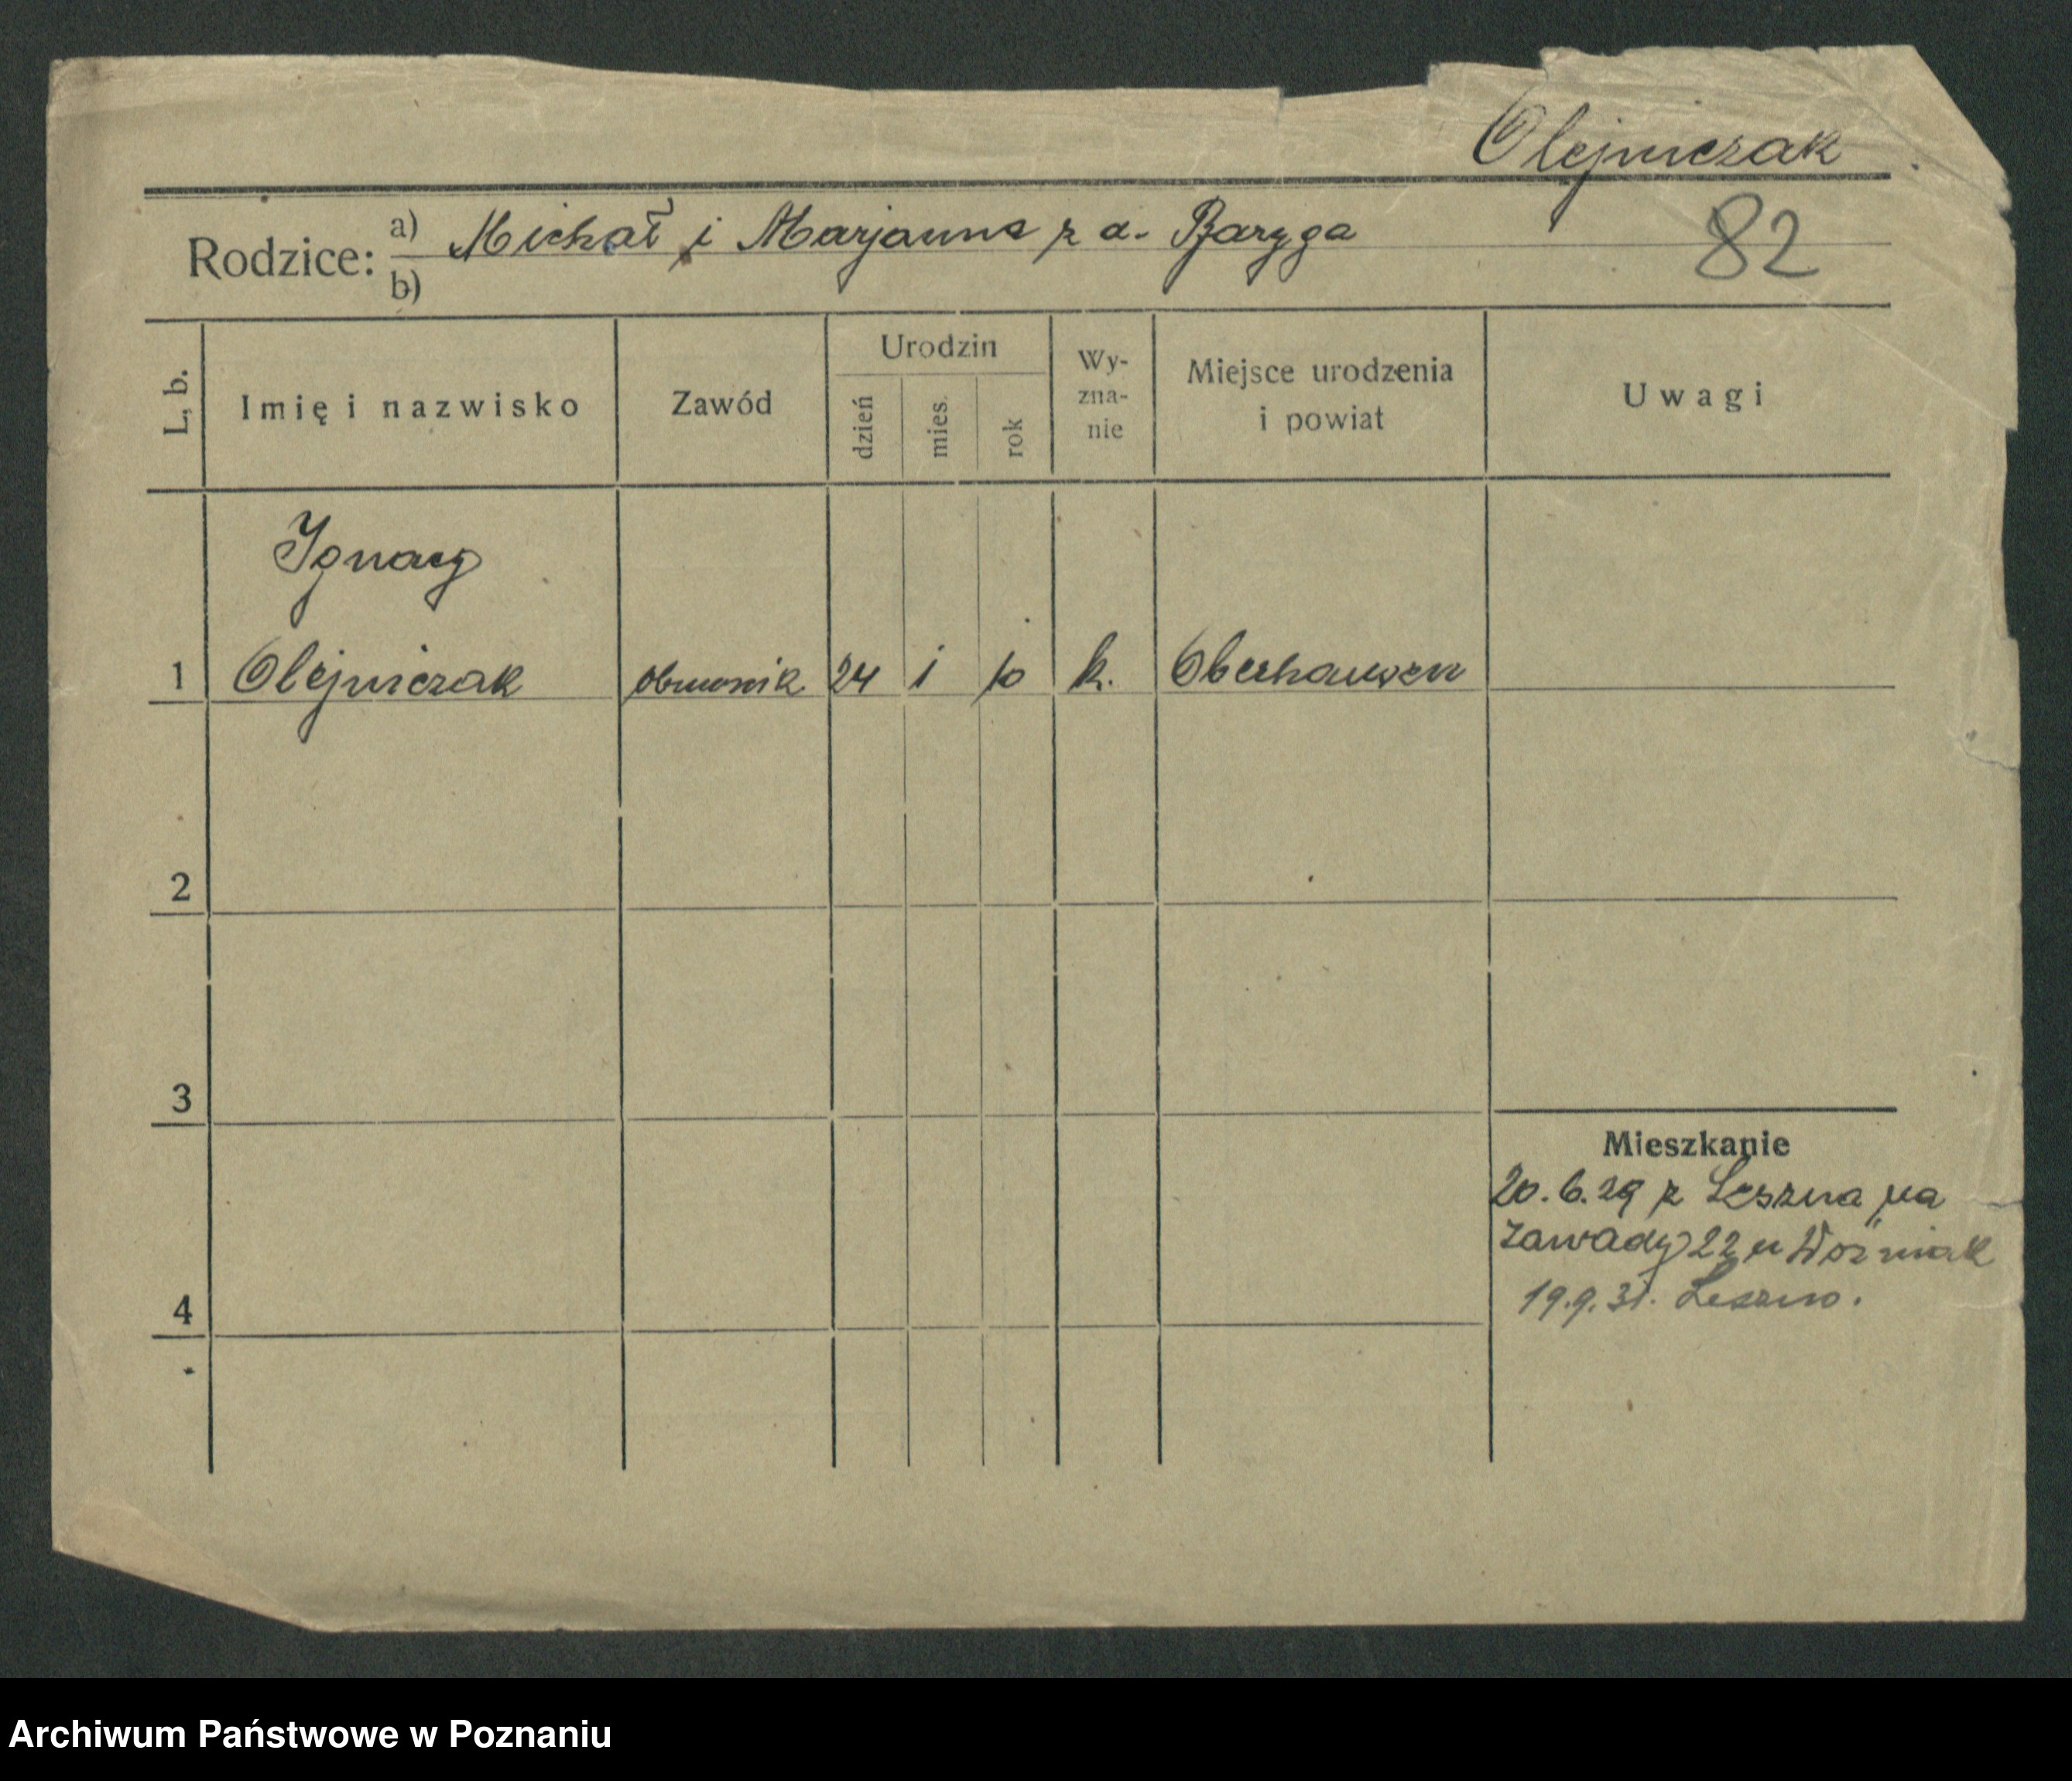 Olejniczak
Rodzice: a) Michał i Marjanna z d. Baryga
b)
82
L. b.
Imię i nazwisko
Zawód
Urodzin
dzień
mies.
rok
Wy-
zna-
nie
Miejsce urodzenia
i powiat
Uwagi
Ignacy
1 Olejniczak 24 1 10 k. Oberhausen
2
3
4
Mieszkanie
20.6.29 z Leszna na
Zawady 22 u Woźniak
19.9.31. Leszno.
Archiwum Państwowe w Poznaniu